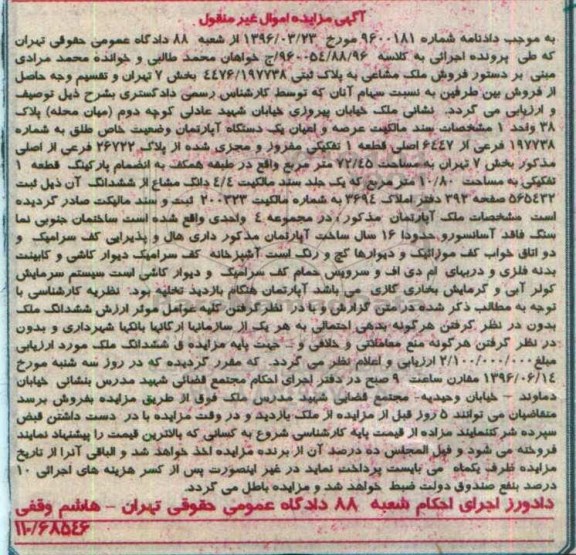 آگهی مزایده اموال غیر منقول
به موجب دادنامه شماره ۹۶۰۰۱۸۱ مورخ ۱۳۹۶/۰۳/۲۳ از شعبه ۸۸ دادگاه عمومی حقوقی تهران
که طی پرونده اجرائی به کلاسه ۹۶۰۰۵۴/۸۸/۹۶/ج خواهان محمد طالبی و خوانده محمد مرادی
مبنی بر دستور فروش ملک مشاعی به پلاک ثبتی ۴۴۷۶/۱۹۷۷۳۸ بخش ۷ تهران و تقسیم وجه حاصل
از فروش بین طرفین به نسبت سهام آنان که توسط کارشناس رسمی دادگستری بشرح ذیل توصیف
و ارزیابی می گردد. نشانی ملک خیابان پیروزی خیابان شهید عادلی کوچه دوم (مهان محله) پلاک
۳۸ واحد ۱ مشخصات سند مالکیت عرصه و اعیان یک دستگاه آپارتمان وضعیت خاص طلق به شماره
۱۹۷۷۳۸ فرعی از ۶۴۴۷ اصلی قطعه ۱ تفکیکی مفروز و مجزی شده از پلاک ۲۶۷۲۲ فرعی از اصلی
مذکور بخش ۷ تهران به مساحت ۷۲/۴۵ متر مربع واقع در طبقه همکف به انضمام پارکینگ قطعه ۱
تفکیکی به مساحت ۱۰/۸۰ متر مربع که یک جلد سند مالکیت ۴/۴ دانگ مشاع از ششدانگ آن ذیل ثبت
۵۶۵۴۳۲ صفحه ۳۹۲ دفتر املاک ۳۶۹۴ به شماره مالکیت ۲۰۰۳۲۳ ثبت و سند مالکیت صادر گردیده
است مشخصات ملک آپارتمان مذکور، در مجموعه ۴ واحدی واقع شده است ساختمان جنوبی نما
سنگ فاقد آسانسور، حدودا ۱۶ سال ساخت آپارتمان مذکور داری هال و پذیرایی کف سرامیک و
دو اتاق خواب کف موزائیک و دیوارها گچ و رنگ است آشپزخانه کف سرامیک دیوار کاشی و کابینت
بدنه فلزی و دربهای ام دی اف و سرویس حمام کف سرامیک و دیوار کاشی است سیستم سرمایش
کولر آبی و گرمایش بخاری گازی می باشد آپارتمان هنگام بازدید تخلیه بود. نظریه کارشناسی با
توجه به مطالب ذکر شده در متن گزارش و با در نظر گرفتن کلیه عوامل موثر ارزش ششدانگ ملک
بدون در نظر گرفتن هرگونه بدهی احتمالی به هر یک از سازمانها ارگانها بانکها شهرداری و بدون
در نظر گرفتن هرگونه منع معاملاتی و خلافی و ... جهت پایه مزایده ی ششدانگ ملک مورد ارزیابی
مبلغ ۲/۱۰۰/۰۰۰/۰۰۰ ارزیابی و اعلام نظر می گردد. که مقرر گردیده که در روز سه شنبه مورخ
۱۳۹۶/۰۶/۱۴ مقارن ساعت ۹ صبح در دفتر اجرای احکام مجتمع قضائی شهید مدرس بنشانی خیابان
دماوند - خیابان وحیدیه- مجتمع قضایی شهید مدرس ملک فوق از طریق مزایده بفروش برسد
متقاضیان می توانند ۵ روز قبل از مزایده از ملک بازدید و در وقت مزایده با در دست داشتن قبض
سپرده شرکتنمایند مزاده از قیمت پایه کارشناسی شروع به کسانی که بالاترین قیمت را پیشنهاد نمایند
فروخته می شود و فیل المجلس ده درصد آن از برنده مزایده اخذ خواهد شد و الباقی آنرا از تاریخ
مزایده ظرف یکماه می بایست پرداخت نماید در غیر اینصورت پس از کسر هزینه های اجرائی ۱۰
درصد بنفع صندوق دولت ضبط خواهد شد و مزایده باطل می گردد.
دادورز اجرای احکام شعبه ۸۸ دادگاه عمومی حقوقی تهران - هاشم وقفی
۱۱۰/۶۸۵۴۶